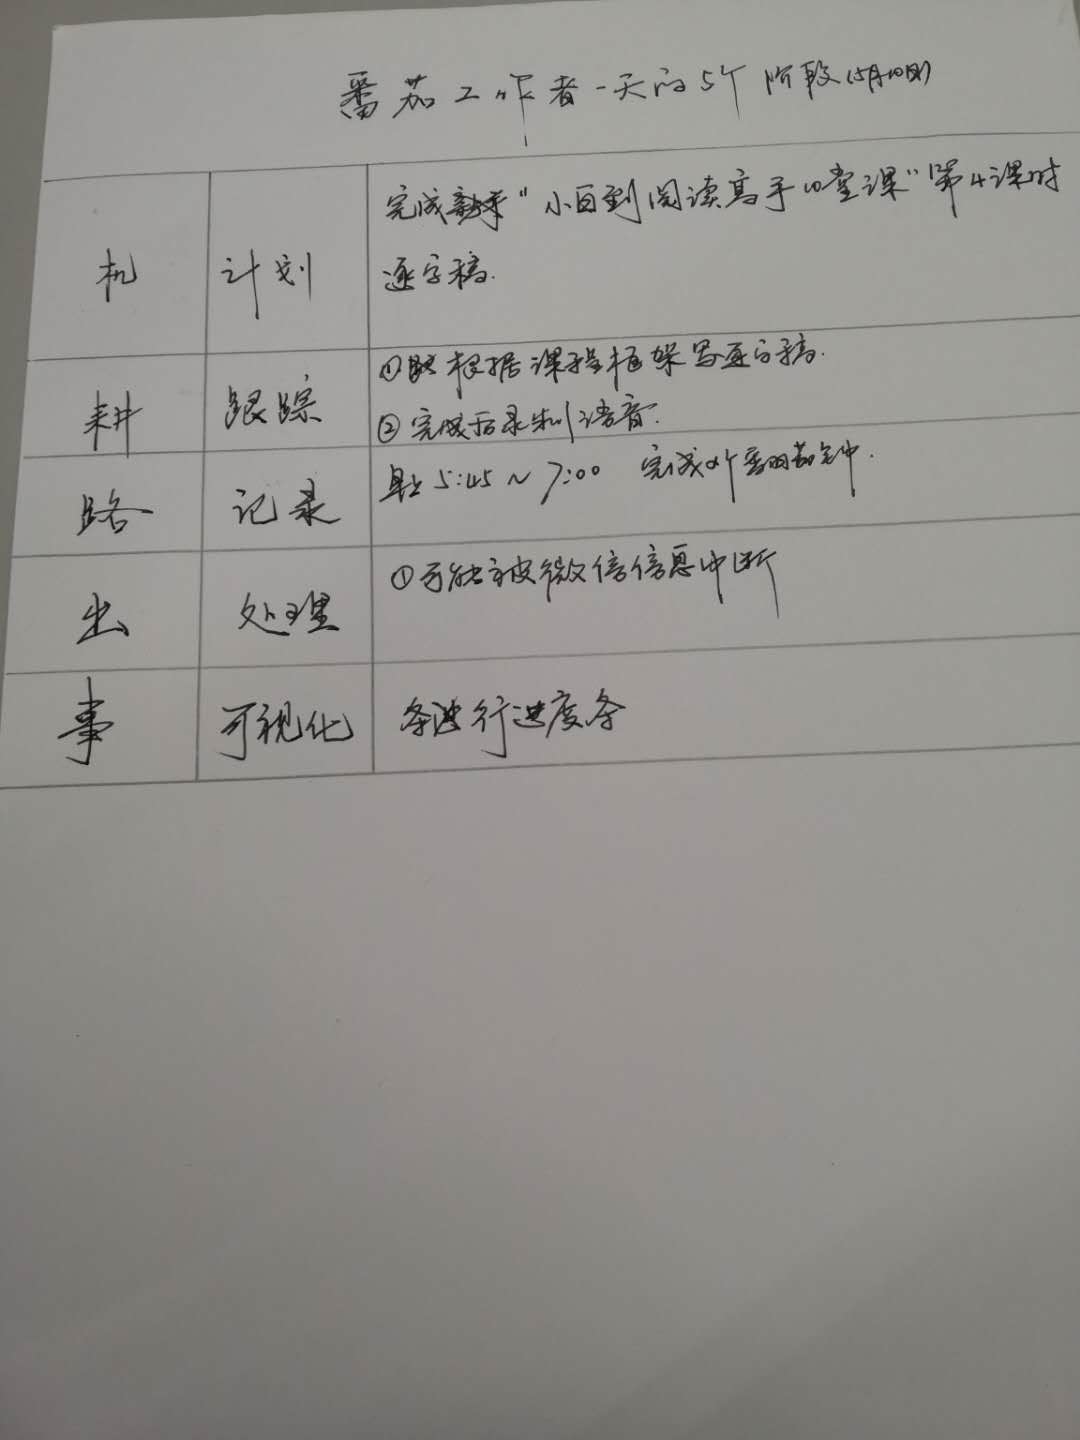 番茄工作者一天的5个阶段(5月10日)
机 计划 完成"小白到阅读高手10堂课"第4课时
逐字稿.
耕 跟踪 ①根据课程框架写逐字稿.
②完成后录制语音.
路 记录 早上5:45~7:00 完成2个番茄钟.
出 处理 ①可能被微信信息中断
事 可视化 行进度条